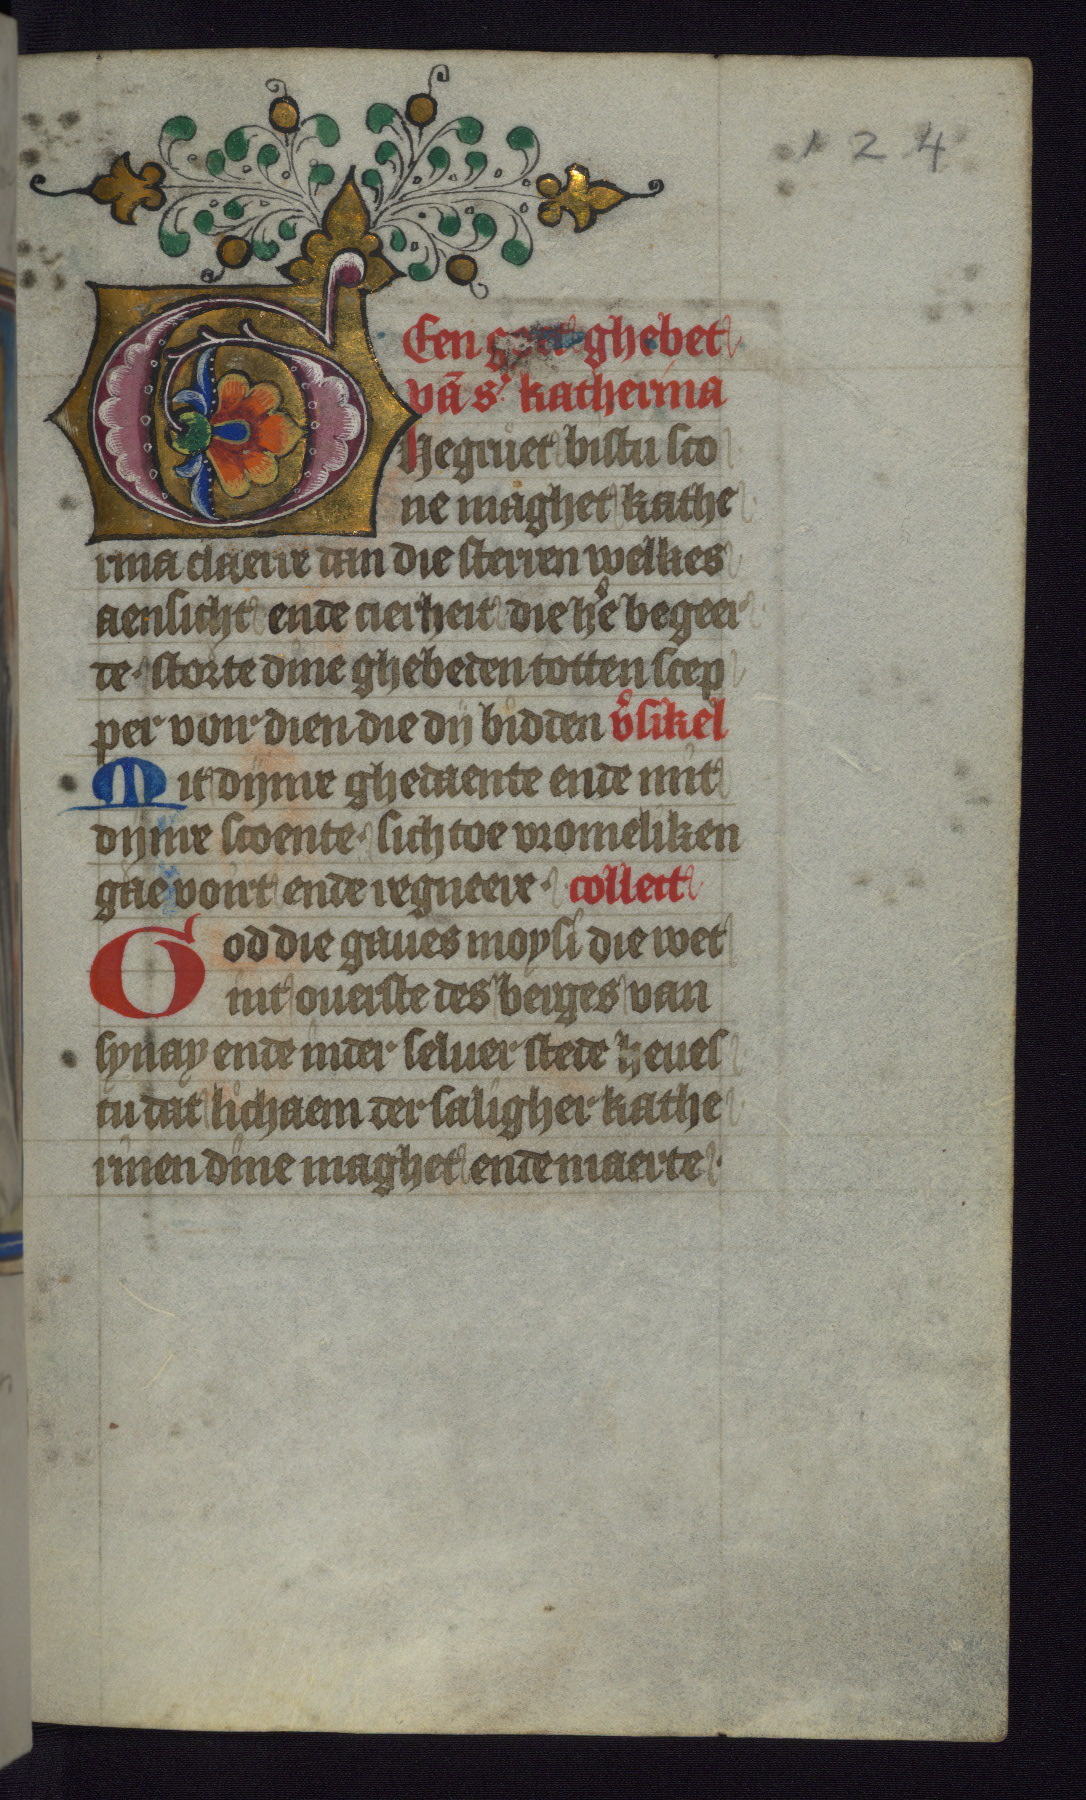 124
Een goet ghebet
vā s' katherina
Ghegruet bistu sco
ne maghet kathe
rina claerre dan die sterren welkes
aensicht ende cierheit die hr̄e begeer
de· storte dine ghebeden totten scep
per voir dien die dij bidden v̄sikel
Mit dijnre ghedaente ende mit
dijnre scoente· sich toe vromeliken
gae voirt ende regneere· collect
God die gaues moysi die wet
int ouerste des berges van
synay ende inder seluer stede heues
tu dat lichaem der saligher kathe
rinen dine maghet ende maerte